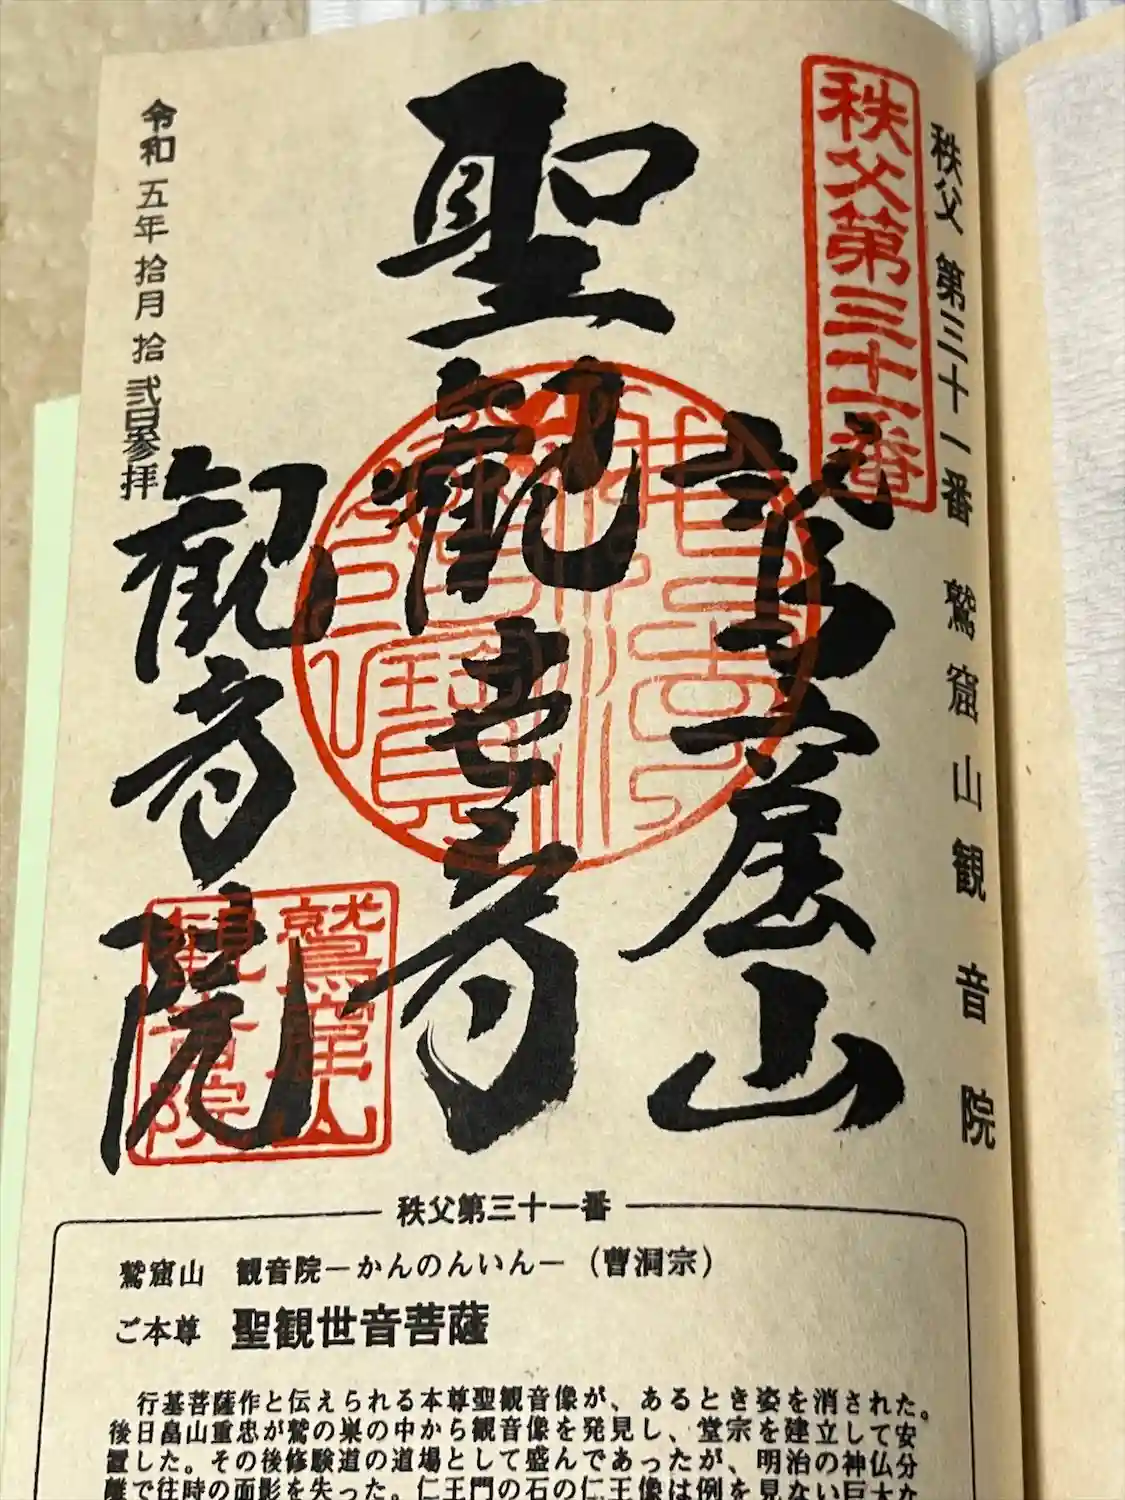 秩父 第三十一番 鷲窟山観音院
秩父第三十一番
鷲窟山
聖観世音
観音院
鷲窟山
観音院
令和五年拾月拾弐日参拝
秩父第三十一番
鷲窟山 観音院－かんのんいん－（曹洞宗）
ご本尊 聖観世音菩薩
行基菩薩作と伝えられる本尊聖観音像が、あるとき姿を消された。
後日畠山重忠が鷲の巣の中から観音像を発見し、堂宗を建立して安
置した。その後修験道の道場として盛んであったが、明治の神仏分
離で往時の面影を失った。仁王門の石の仁王像は例を見ない巨大な